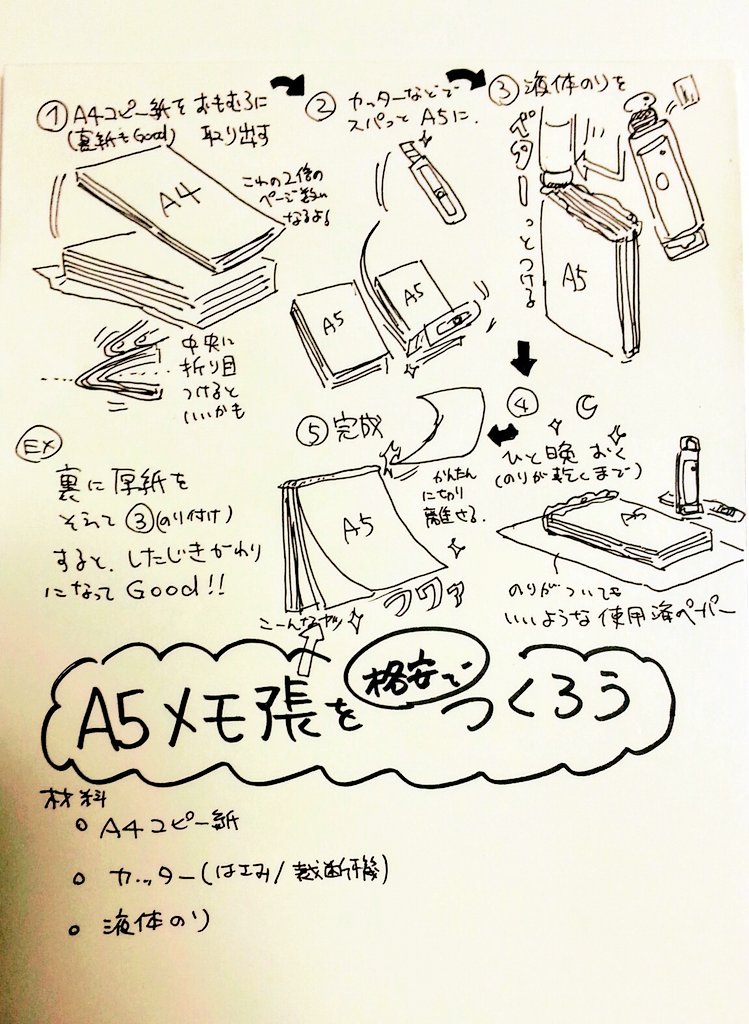 ① A4コピー紙を おもむろに
(裏紙もGood) 取り出す
A4
これの2倍の
ページ数に
なるよ!
中央に
折り目
つけると
いいかも
② カッターなどで
スパっと A5に.
A5
A5
③ 液体のりを
ベターーっとつける
A5
④
ひと晩 おく
(のりが乾くまで)
A5
のりがついても
いいような 使用済ペーパー
⑤ 完成
かんたん
にちり
離せる.
A5
フワァ
こーんなヤツ
EX
裏に厚紙を
そえて ③(のり付け)
すると、したじきがわり
になって Good!!
A5メモ張を 格安で つくろう
材料
○ A4コピー紙
○ カッター(はさみ/裁断機)
○ 液体のり